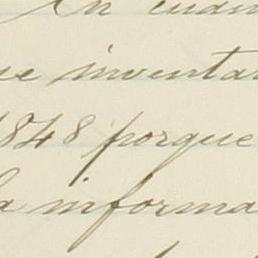 En cuan
ue inventa
1848 porque
la informa